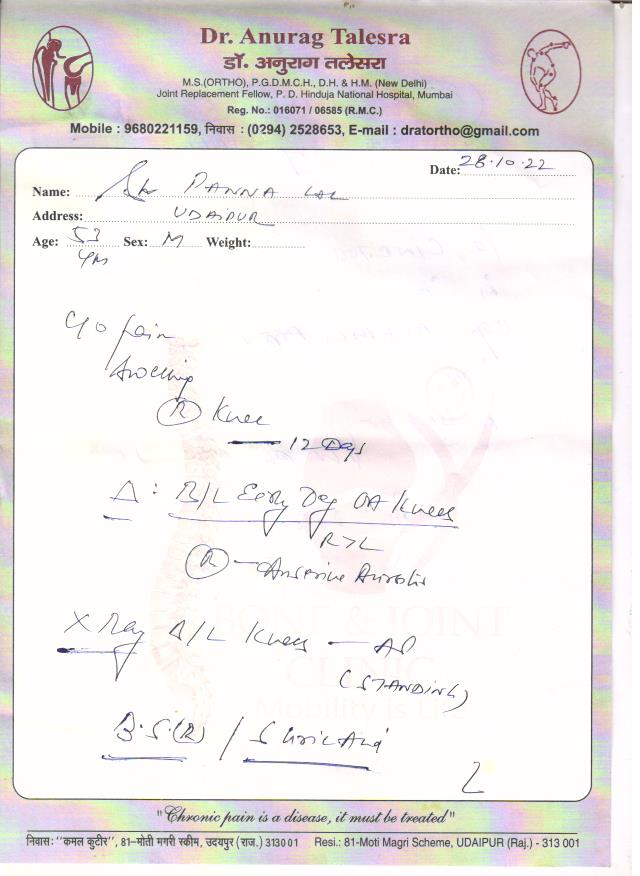 Dr. Anurag Talesra
डॉ. अनुराग तलेसरा
M.S.(ORTHO), P.G.D.M.C.H., D.H. & H.M. (New Delhi)
Joint Replacement Fellow, P. D. Hinduja National Hospital, Mumbai
Reg. No.: 016071 / 06585 (R.M.C.)
Mobile : 9680221159, निवास : (0294) 2528653, E-mail : dratortho@gmail.com
Date: 28.10.22
Name: PANNA LAL
Address: UDAIPUR
Age: 53 Sex: M Weight:
C/o pain
Swelling
(R) Knee
— 12 Days
Δ : B/L Early Deg OA Knees
R>L
(R) — Anserine Bursitis
X Ray B/L Knees — AP
(STANDING)
B.S.(R) /
BONE & JOINT
CLINIC
Mobility is Life
"Chronic pain is a disease, it must be treated"
निवास: "कमल कुटीर", 81-मोती मगरी स्कीम, उदयपुर (राज.) 313001 Resi.: 81-Moti Magri Scheme, UDAIPUR (Raj.) - 313 001